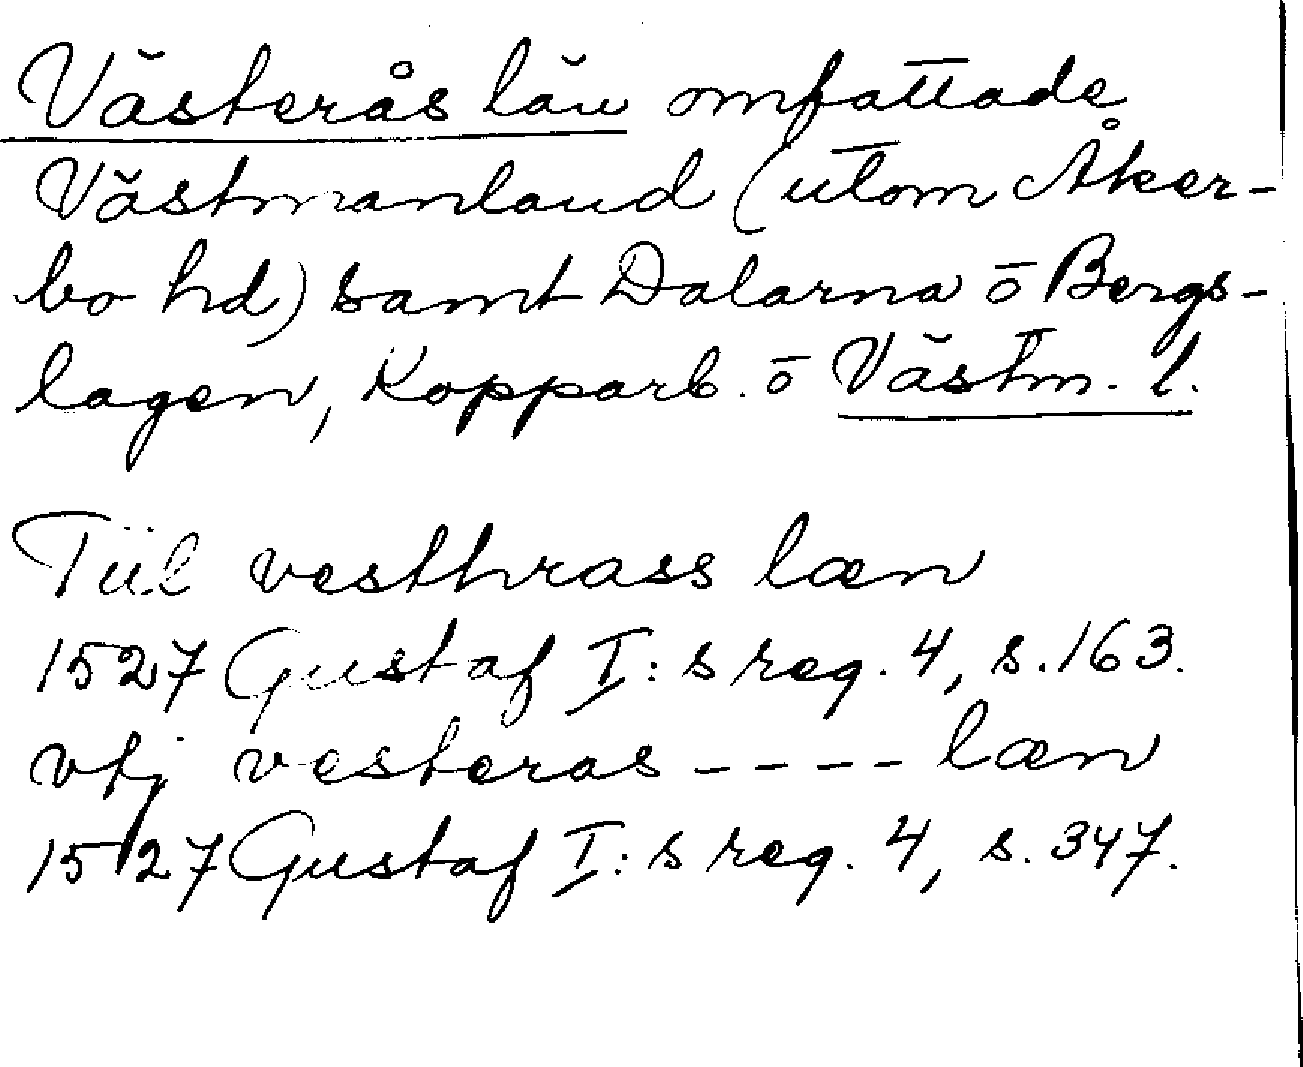 Västerås län omfattade
Västmanland (utom Åker-
bo hd) samt Dalarna ō Bergs-
lagen, Kopparb. ō Västm. l.
Tiil vesthrass læn
1527 Gustaf I:s reg. 4, s. 163.
vtj vesteras - - - - læn
1527 Gustaf I:s reg. 4, s. 347.